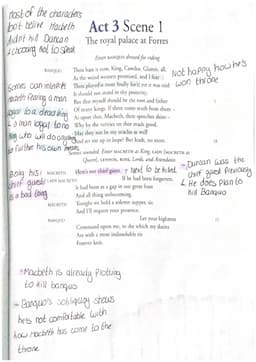 Most of the characters
but believe Macbeth
didn't kill Duncan
choosing not to speak
Act 3 Scene 1
The royal palace at Forres
Enter BANQUO dressed for riding
BANQUO Thou hast it now, King, Cawdor, Glamis, all,
As the weïrd women promised, and I fear
Thou played'st most foully for't; yet it was said
It should not stand in thy posterity,
But that myself should be the root and father
Of many kings. If there come truth from them –
As upon thee, Macbeth, their speeches shine –
Why by the verities on thee made good,
May they not be my oracles as well
And set me up in hope? But hush, no more.
Not happy how he's
won throne
Scenes can
Macbeth fearing a man
loyal to a dead king
a man loyal to no
king who will do anything
to further his own
Sennet sounded. Enter MACBETH as King, LADY MACBETH as
Queen, LENNOX, ROSS, Lords, and Attendants
MACBETH Here's our chief guest.
→ need to be killed
LADY MACBETH If he had been forgotten,
It had been as a gap in our great feast
And all thing unbecoming.
MACBETH Tonight we hold a solemn supper, sir,
And I'll request your presence.
BANQUO Let your highness
Command upon me, to the which my duties
Are with a most indissoluble tie
Forever knit.
Being his
chief guest
is a bad thing
Duncan was the
chief guest previously
↳ He does plan to
kill Banquo
Macbeth is already plotting
to kill banquo
Banquo's soliloquy shows
he's not comfortable with
how Macbeth has come to the
throne